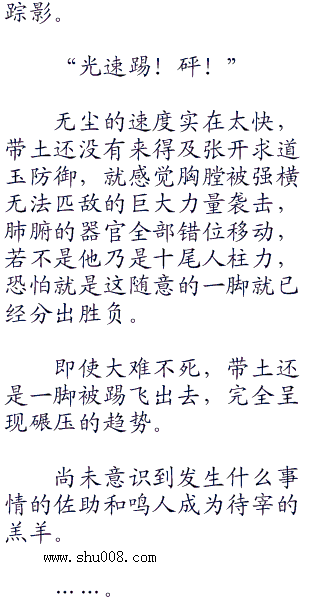 踪影。
“光速踢！砰！”
无尘的速度实在太快，
带土还没有来得及张开求道
玉防御，就感觉胸膛被强横
无法匹敌的巨大力量袭击，
肺腑的器官全部错位移动，
若不是他乃是十尾人柱力，
恐怕就是这随意的一脚就已
经分出胜负。
即使大难不死，带土还
是一脚被踢飞出去，完全呈
现碾压的趋势。
尚未意识到发生什么事
情的佐助和鸣人成为待宰的
羔羊。
www.shu008.com
……。